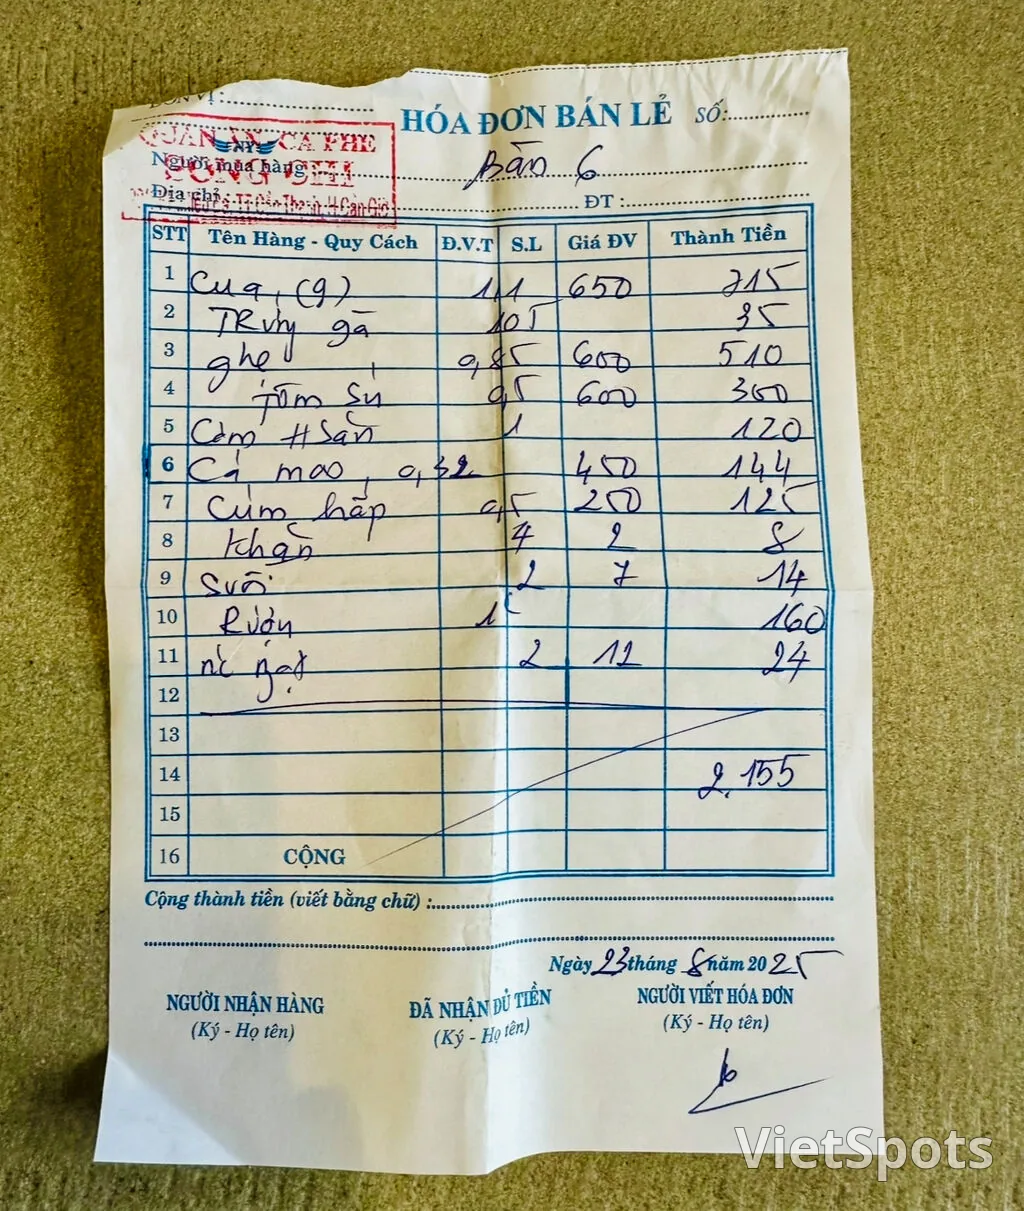 ĐƠN VỊ: HÓA ĐƠN BÁN LẺ SỐ:
QUÁN ĂN CÀ PHE
Người mua hàng: Bàn 6
Địa chỉ: ĐT :
TT Cần Thạnh, H Cần Giờ
STT Tên Hàng - Quy Cách Đ.V.T S.L Giá ĐV Thành Tiền
1 Cua (g) 1,1 650 715
2 TRứng gà 10 5 35
3 ghẹ 0,85 600 510
4 Tôm Sú 0,5 600 300
5 Cơm HSản 1 120
6 Cá mao 0,32 450 144
7 Cúm hấp 0,5 250 125
8 Khăn 4 2 8
9 Suối 2 7 14
10 Rượu 1 160
11 nc ngọt 2 12 24
12
13
14 2.155
15
16 CỘNG
Cộng thành tiền (viết bằng chữ) :
Ngày 23 tháng 8 năm 2025
NGƯỜI NHẬN HÀNG ĐÃ NHẬN ĐỦ TIỀN NGƯỜI VIẾT HÓA ĐƠN
(Ký - Họ tên) (Ký - Họ tên) (Ký - Họ tên)
VietSpots